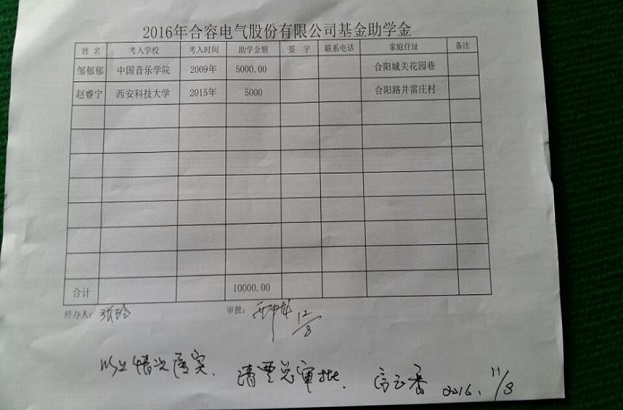 2016年合容电气股份有限公司基金助学金
姓 名 考入学校 考入时间 助学金额 签 字 联系电话 家庭住址 备注
邹郁郁 中国音乐学院 2009年 5000.00 合阳城关花园巷
赵睿宁 西安科技大学 2015年 5000 合阳路井雷庄村
合计 10000.00
经办人: 审批: 12/8
以上情况属实. 请贾总审批. 2016. 11/8